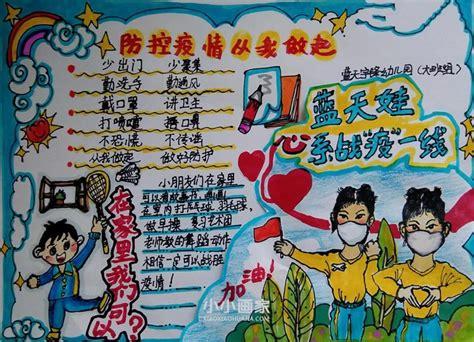 防控疫情从我做起
少出门 少聚集
勤洗手 勤通风
戴口罩 讲卫生
打喷嚏 捂口鼻
不恐慌 不传谣
从我做起 做好防护
小朋友们在家里
可以看故事书、画画
在室内打乒乓球、羽毛球
做早操 复习艺术团
老师教的舞蹈动作
相信一定可以战胜
疫情！
在家里我们可以？
蓝天宇锋幼儿园
蓝天娃
心系战“疫”一线
加油！
小小画家
XIAOXIAOHUAJIA.COM